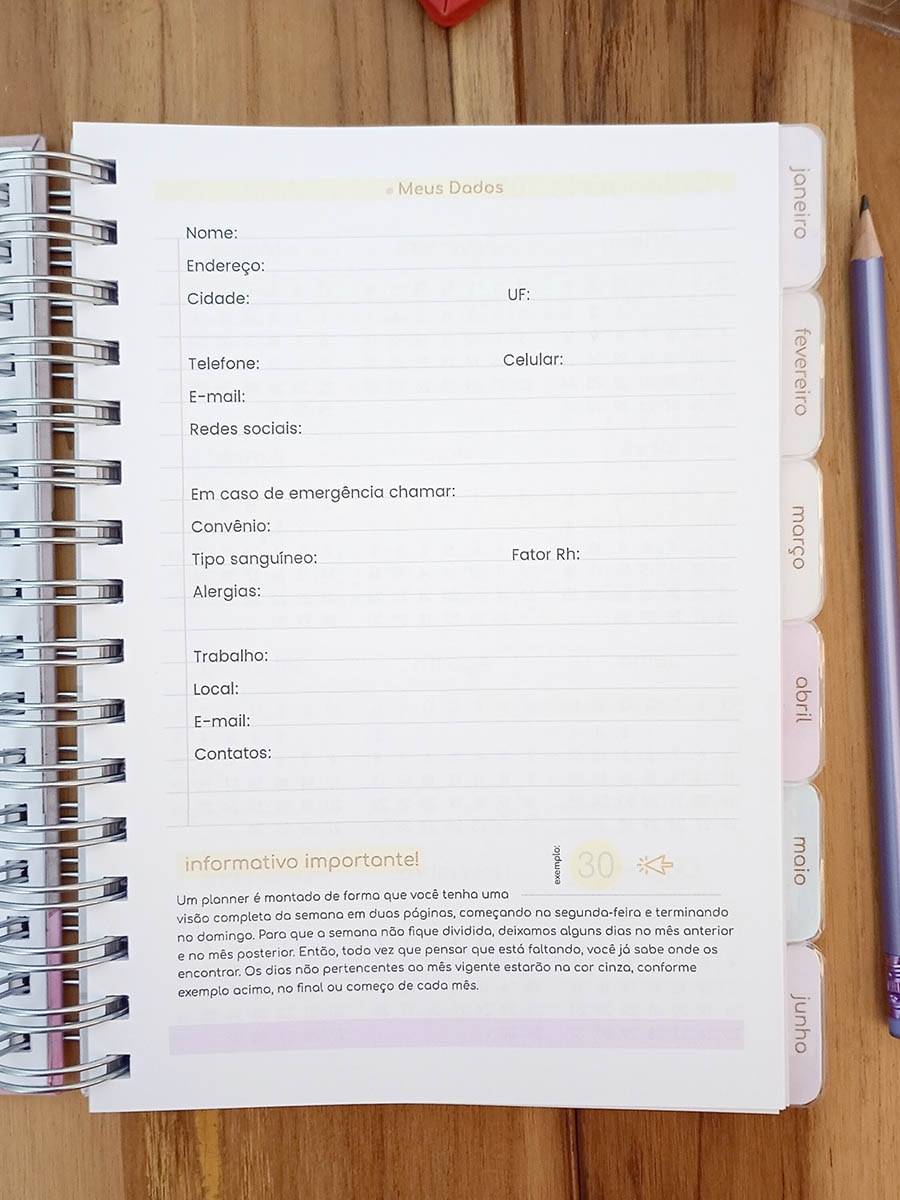 Meus Dados
Nome:
Endereço:
Cidade: UF:
Telefone: Celular:
E-mail:
Redes sociais:
Em caso de emergência chamar:
Convênio:
Tipo sanguíneo: Fator Rh:
Alergias:
Trabalho:
Local:
E-mail:
Contatos:
informativo importante!
exemplo: 30
Um planner é montado de forma que você tenha uma
visão completa da semana em duas páginas, começando na segunda-feira e terminando
no domingo. Para que a semana não fique dividida, deixamos alguns dias no mês anterior
e no mês posterior. Então, toda vez que pensar que está faltando, você já sabe onde os
encontrar. Os dias não pertencentes ao mês vigente estarão na cor cinza, conforme
exemplo acima, no final ou começo de cada mês.
janeiro
fevereiro
março
abril
maio
junho